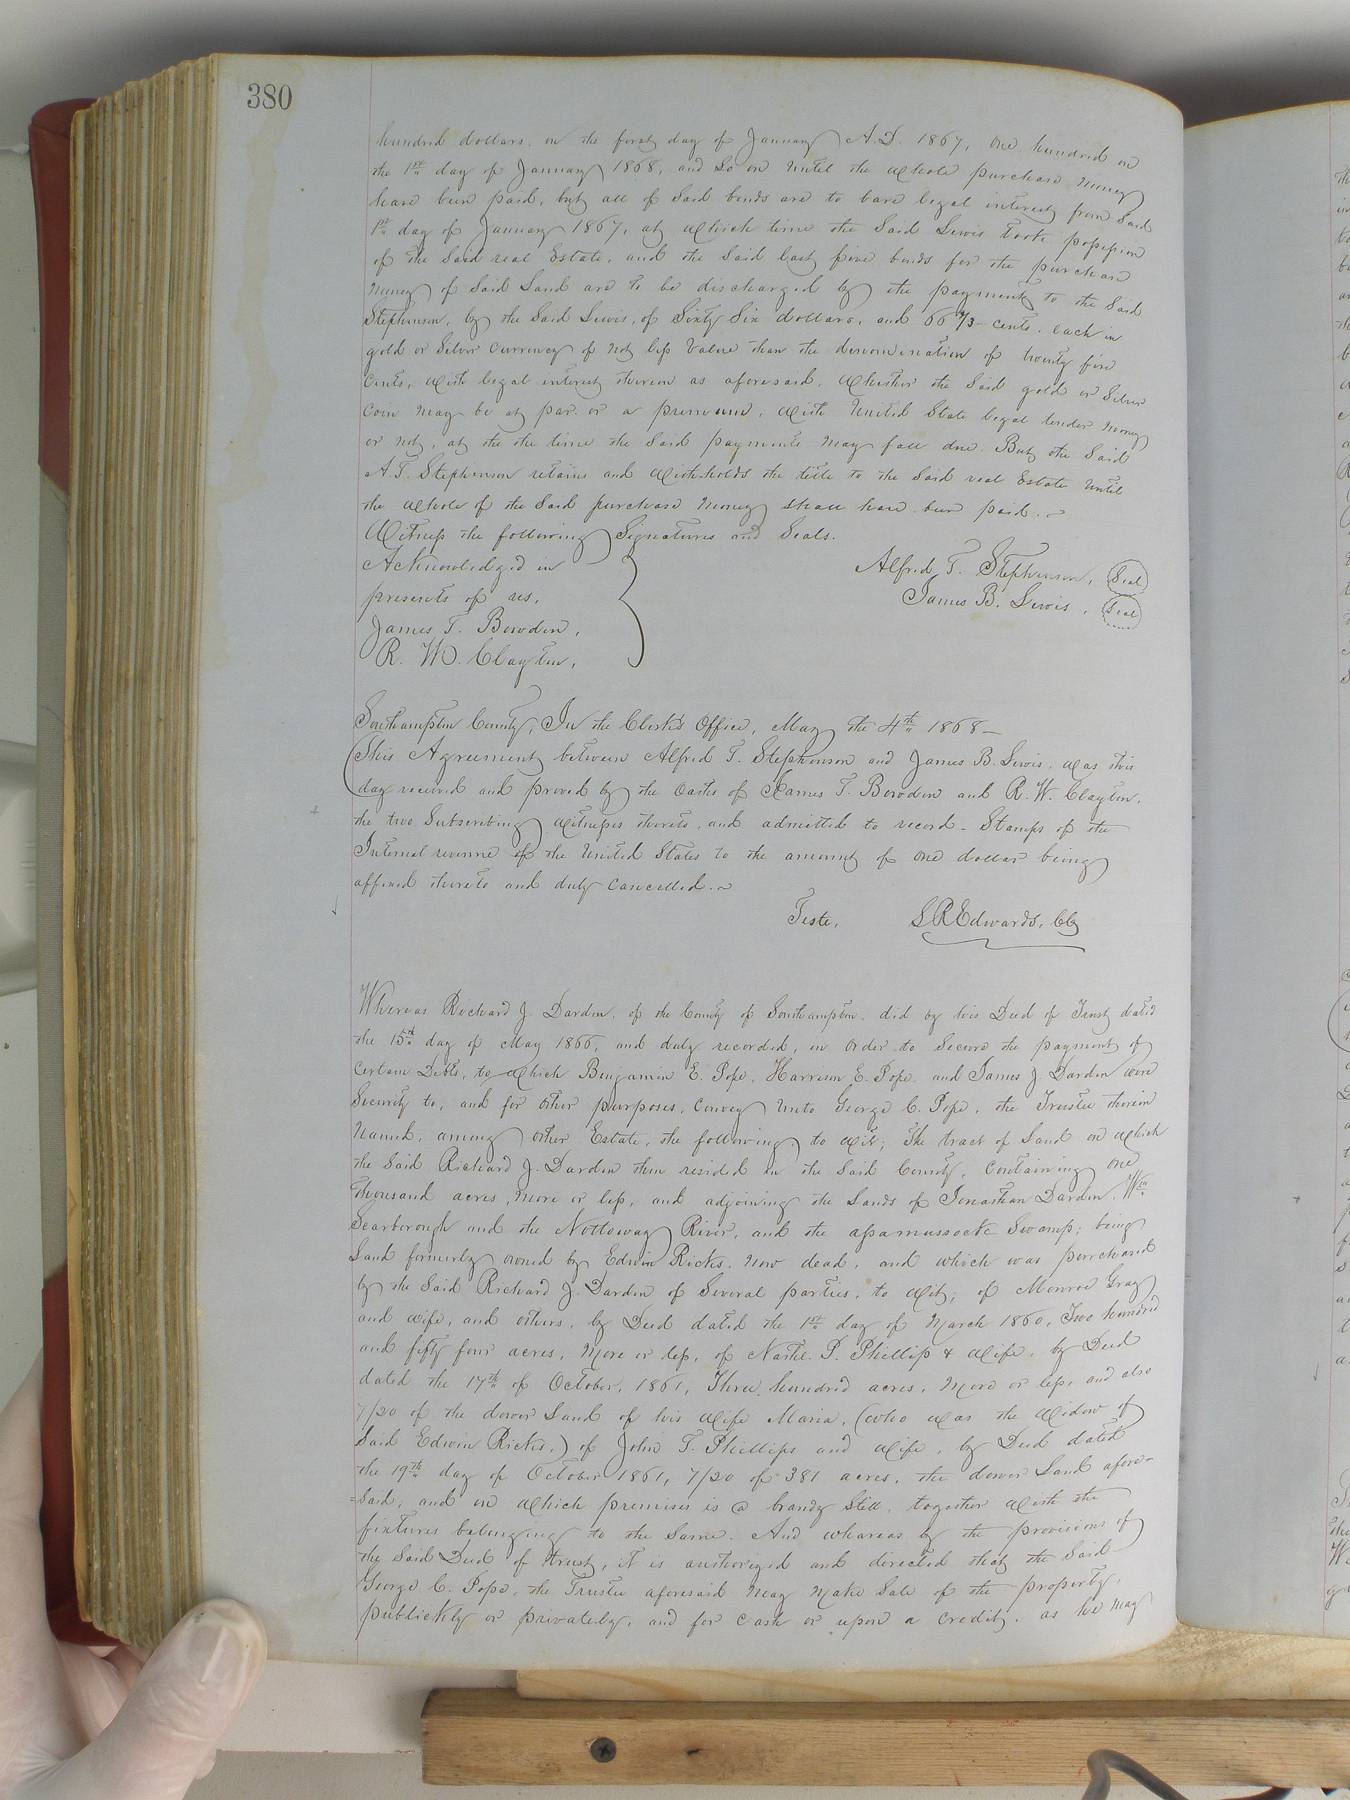 380
hundred dollars. on the first day of January A.D. 1867, One hundred on
the 1st day of January 1868, and So on Until the Whole purchase Money
have been paid, but all of Said bonds are to bare legal interest from Said
1st day of January 1867, at Which time the Said Lewis took possession
of the Said real Estate, and the Said last five bonds for the purchase
Money of Said Land are to be discharged by the payment to the Said
Stephenson, by the Said Lewis, of Sixty Six dollars, and 66 2/3 cents. each in
gold or Silver currency of not less Value than the denomination of twenty five
Cents, With legal interest thereon as aforesaid, Whether the Said gold or Silver
Coin May be at par. or a premium, With United State legal tender Money
or not, at the the time the Said payments May fall due. But the Said
A.T. Stephenson retains and Withholds the title to the Said real Estate Until
the Whole of the Said purchase Money shall have been paid.
Witness the following Signatures and Seals.
Acknowledged in
presents of us,
James T. Bowden,
R. W. Clayton,
Alfred T. Stephenson, Seal
James B. Lewis, Seal
Southampton County, In the Clerk's Office, May the 4th 1868
This Agreement between Alfred T. Stephenson and James B. Lewis. Was this
day received and proved by the Oaths of James T. Bowden and R. W. Clayton,
the two Subscribing Witnesses thereto, and admitted to record - Stamps of the
Internal revenue of the United States to the amount of One dollar being
affixed thereto and duly Cancelled.
Teste, L R Edwards, Clk
Whereas Richard J. Darden, of the County of Southampton, did by his Deed of Trust dated
the 15th day of May 1866, and duly recorded, in Order to Secure the payment of
Certain Debts, to Which Benjamin E. Pope, Harrison E. Pope and James J Darden were
Security to, and for Other purposes, Convey Unto George C. Pope, the Trustee therein
Named, among other Estate, the following to Wit; The tract of Land on Which
the Said Richard J. Darden then resided in the Said County, Containing one
thousand acres, More or less, and adjoining the Lands of Jonathan Darden, Wm
Scarborough and the Nottoway River, and the assamussock Swamp; being
Land formerly owned by Edwin Ricks, Now dead, and which was purchased
by the Said Richard J. Darden of Several parties, to Wit; of Monroe Gray
and Wife, and others, by Deed dated the 1st day of March 1860, Two hundred
and fifty four acres, More or less, of Nathl. P. Phillips & Wife, by Deed
dated the 17th of October, 1861, Three hundred acres, More or less, and also
7/20 of the dower Land of his Wife Maria, (who Was the Widow of
Said Edwin Ricks,) of John T. Phillips and Wife, by Deed dated
the 19th day of October 1861, 7/20 of 381 acres, the dower Land afore-
=Said, and on Which premises is a brandy Still, together With the
fixtures belonging to the Same. And whereas by the provisions of
the Said Deed of trust, it is authorized and directed that the Said
George C. Pope, the Trustee aforesaid May Make Sale of the property,
publickly or privately, and for Cash or upon a Credit, as he May